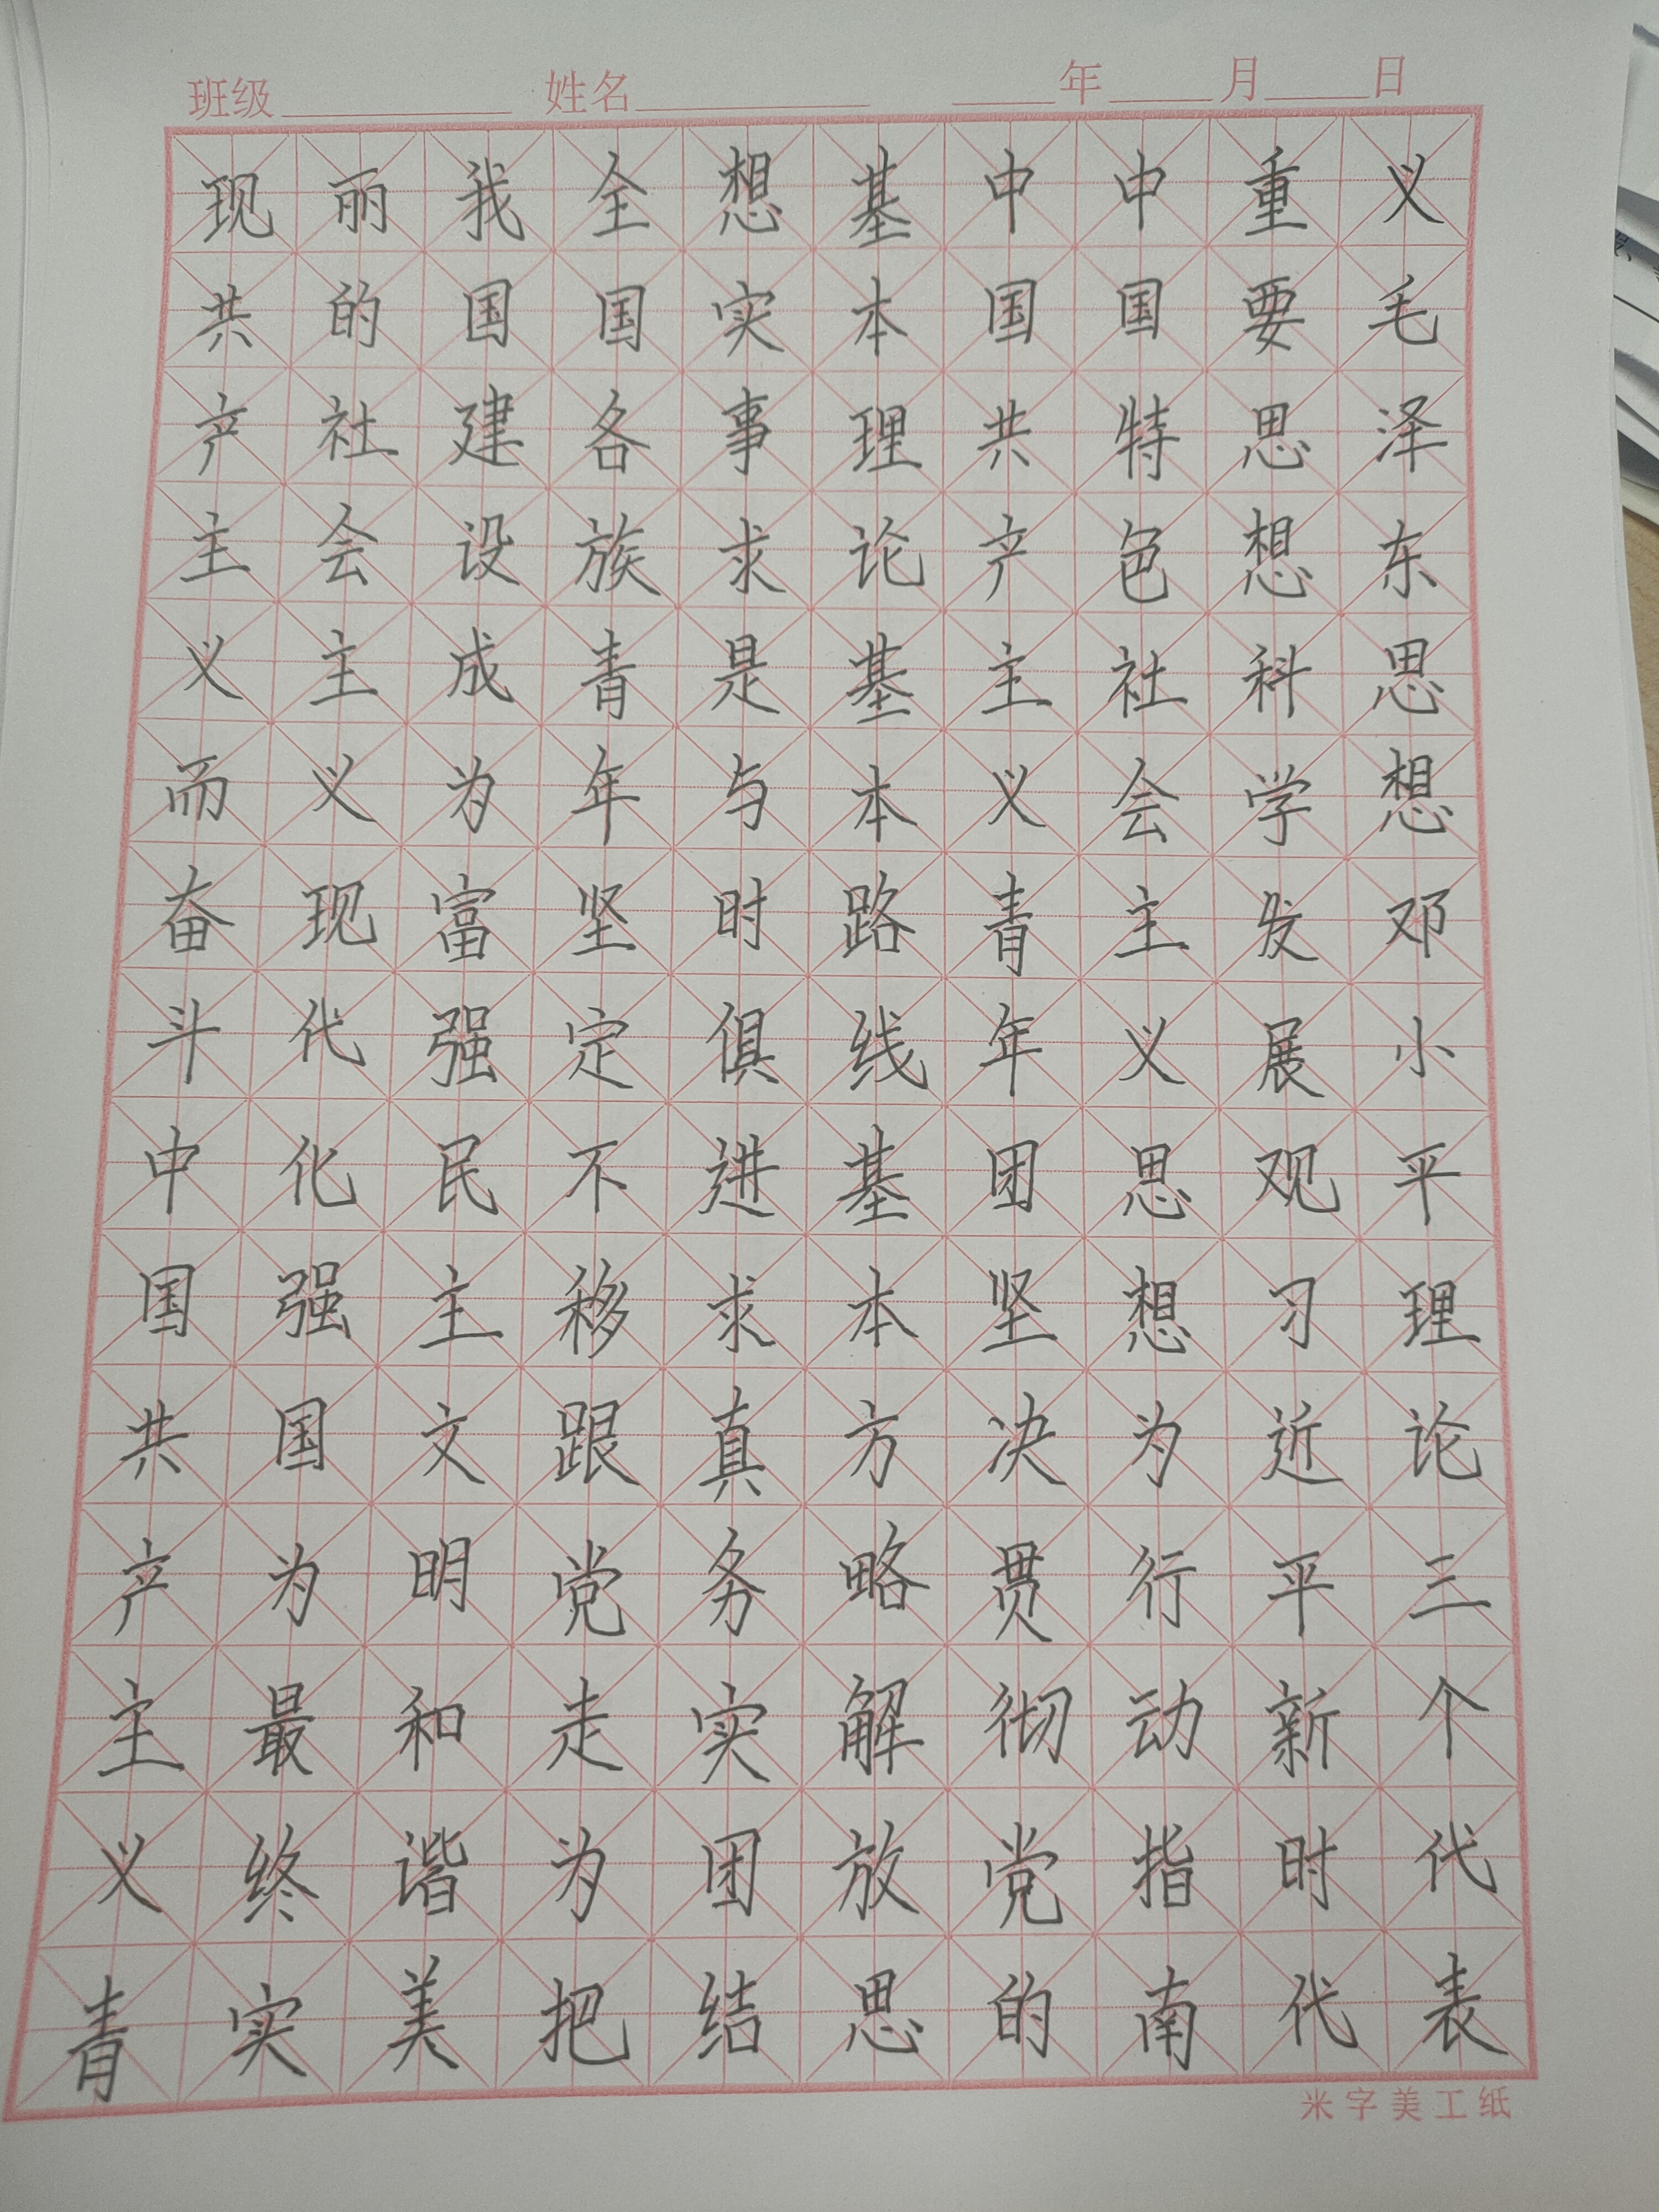 班级 姓名 年 月 日
义毛泽东思想邓小平理论三个代表
重要思想科学发展观习近平新时代
中国特色社会主义思想为行动指南
中国共产主义青年团坚决贯彻党的
基本理论基本路线基本方略解放思
想实事求是与时俱进求真务实团结
全国各族青年坚定不移跟党走为把
我国建设成为富强民主文明和谐美
丽的社会主义现代化强国为最终实
现共产主义而奋斗中国共产主义青
米字美工纸